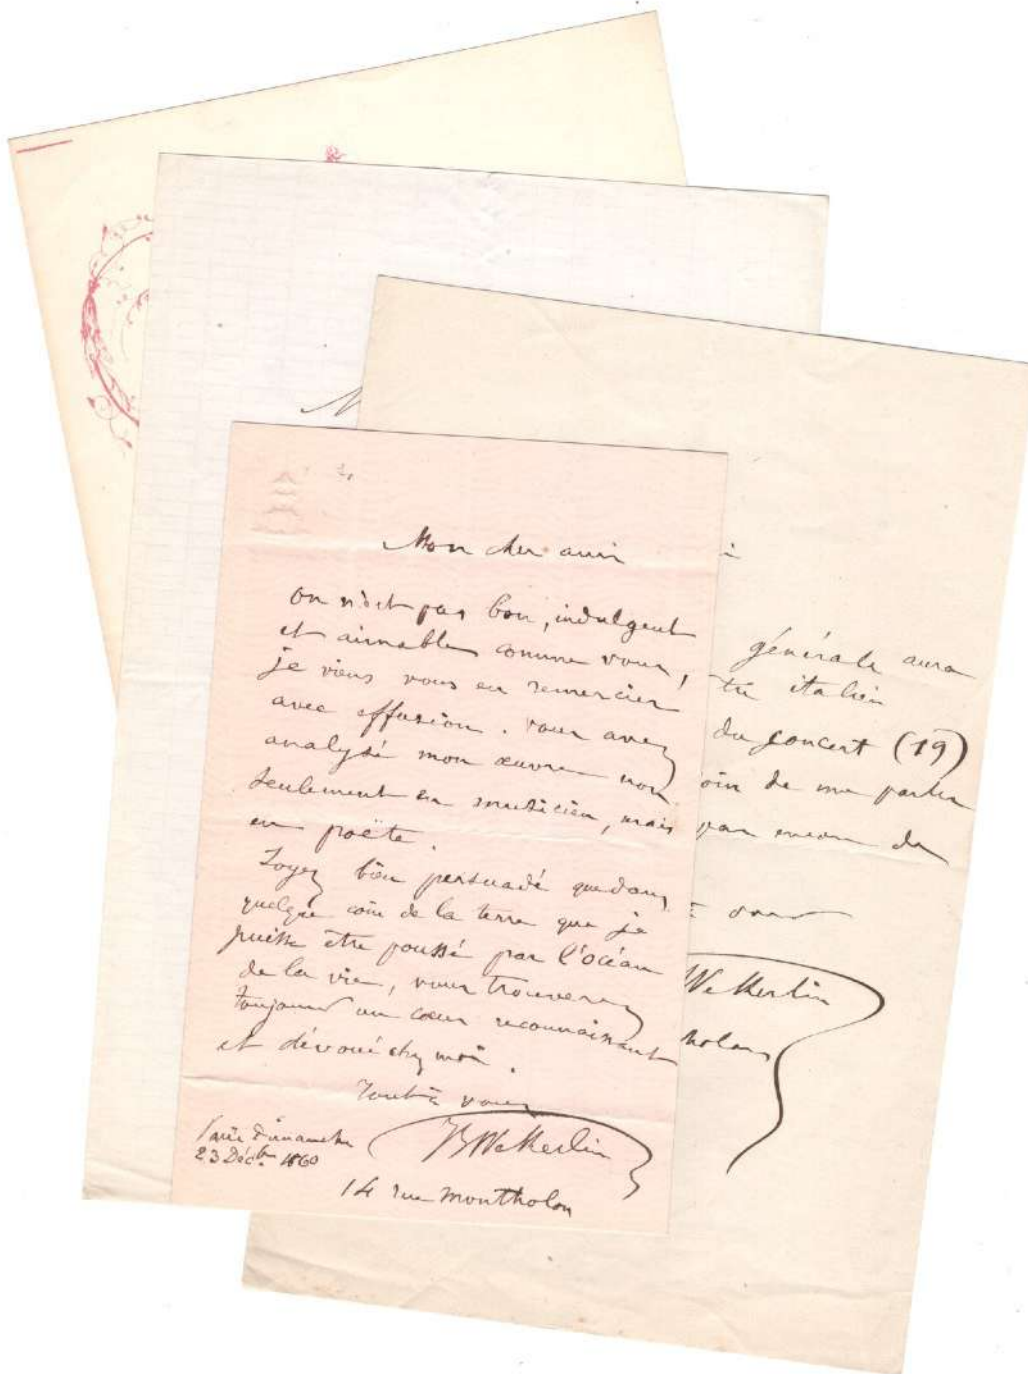 Mon cher ami
on n'est pas bon, indulgent
et aimable comme vous,
je viens vous en remercier
avec effusion. vous avez
analysé mon œuvre non
seulement en musicien, mais
en poëte.
Soyez bien persuadé que dans
quelque coin de la terre que je
puisse être poussé par l'océan
de la vie, vous trouverez
toujours un cœur reconnaissant
et dévoué chez moi.
Tout à vous
JBWekerlin
Paris Dimanche
23 Déc.bre 1860
14 rue Montholon
M
i
générale aura
tre italien
du concert (19)
oin de me parler
pas encore de
à vous
Wekerlin
holon